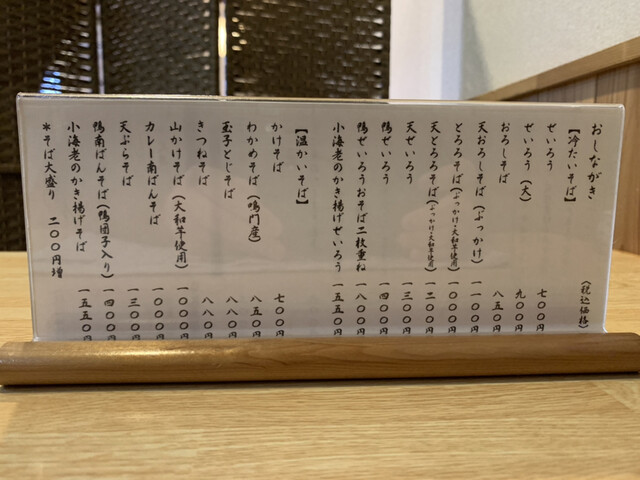 おしながき (税込価格)
【冷たいそば】
せいろう 七〇〇円
せいろう(大) 九〇〇円
おろしそば 八五〇円
天おろしそば(ぶっかけ) 一一〇〇円
とろろそば(ぶっかけ・大和芋使用) 一〇〇〇円
天とろろそば(ぶっかけ・大和芋使用) 一二〇〇円
天せいろう 一三〇〇円
鴨せいろう 一四〇〇円
鴨せいろうおそば二枚重ね 一八〇〇円
小海老のかき揚げせいろう 一五五〇円
【温かいそば】
かけそば 七〇〇円
わかめそば(鳴門産) 八五〇円
玉子とじそば 八八〇円
きつねそば 八八〇円
山かけそば(大和芋使用) 一〇〇〇円
カレー南ばんそば 一〇〇〇円
天ぷらそば 一三〇〇円
鴨南ばんそば(鴨団子入り) 一四〇〇円
小海老のかき揚げそば 一五五〇円
*そば大盛り 二〇〇円増